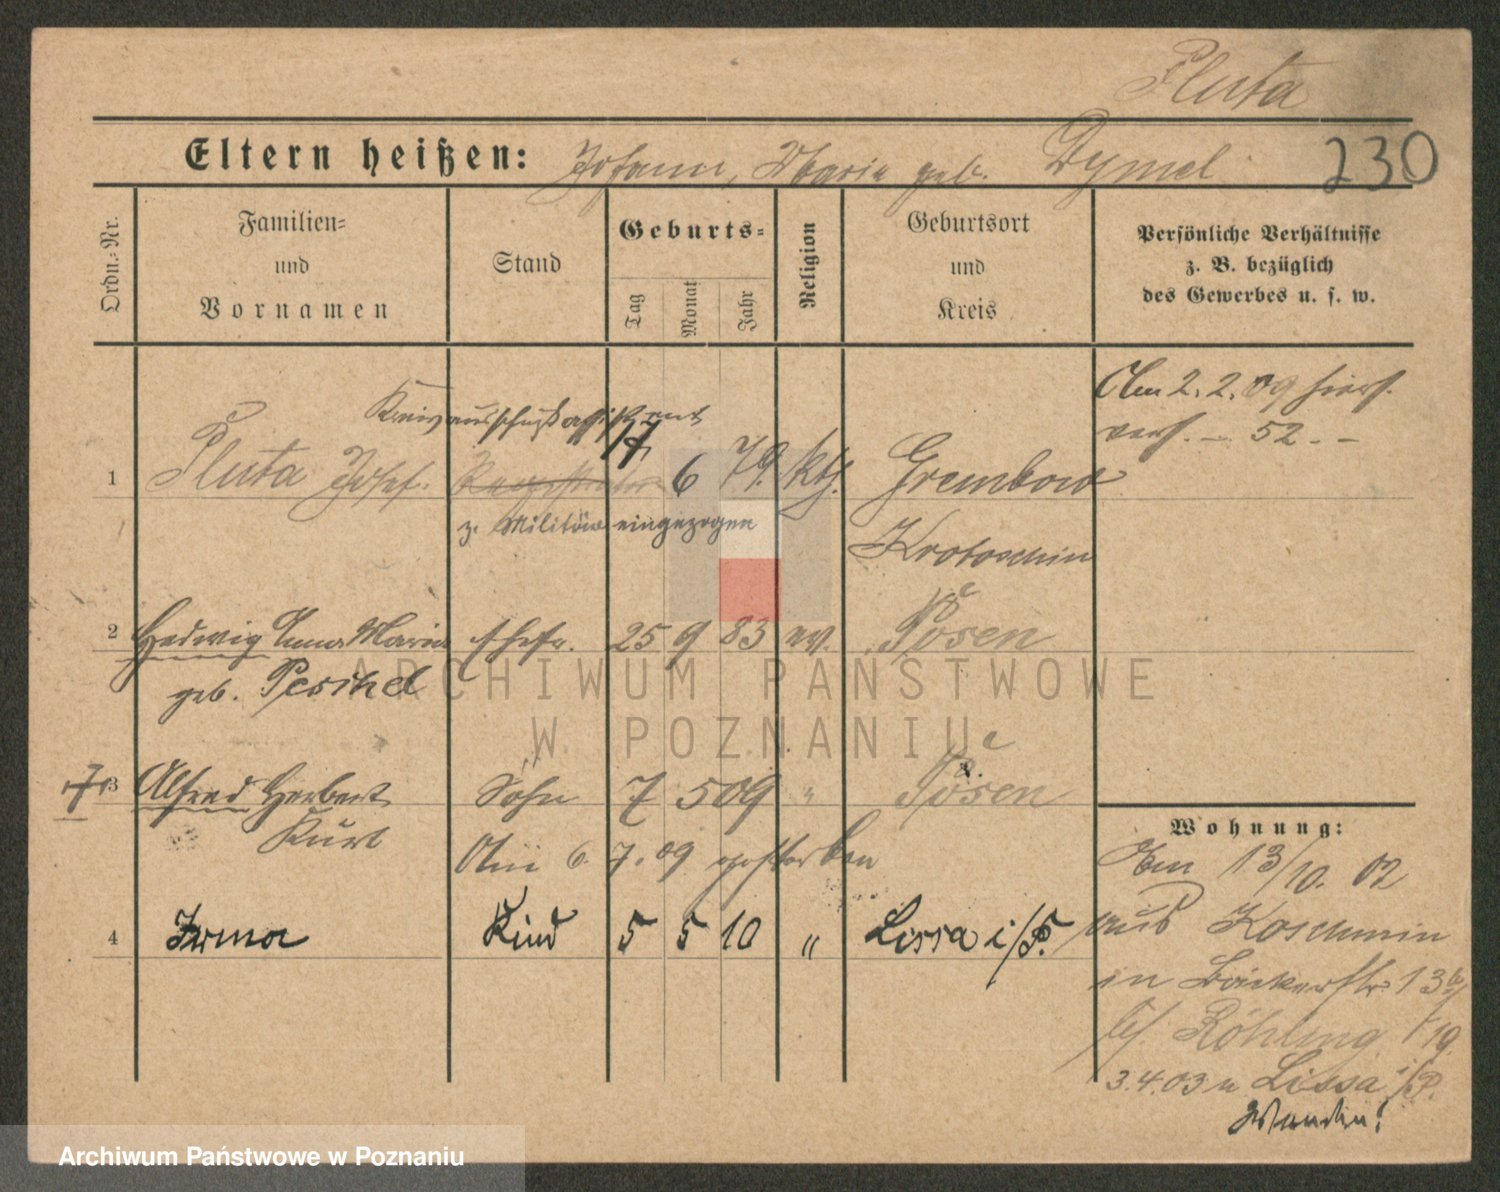 Pluta
Eltern heißen: Johann, Maria geb. Dymel
230
Ordn.-Nr.
Familien-
und
Vornamen
Stand
Geburts-
Tag
Monat
Jahr
Religion
Geburtsort
und
Kreis
Persönliche Verhältnisse
z. B. bezüglich
des Gewerbes u. s. w.
Kreisausschußassistent
1 Pluta Josef. 17 6 79. kth. Grembow
z. Militär eingezogen
Krotoschin
Am 2. 2. 09 hier
verh. – 52. –
2 Hedwig Anna Maria Ehefr. 25 9 83 ev. Posen
geb. Peschel
3 Alfred Herbert Sohn 7 5 09 " Posen
Kurt
Am 6. 7. 09 gestorben
4 Irma Kind 5 5 10 " Lissa i/P.
Wohnung:
Am 13/10. 02
aus Koschmin
in Bäckerstr. 13b/
b/ Röhling
19.
3.4.03 n Lissa i/P.
ARCHIWUM PAŃSTWOWE
W POZNANIU
Archiwum Państwowe w Poznaniu